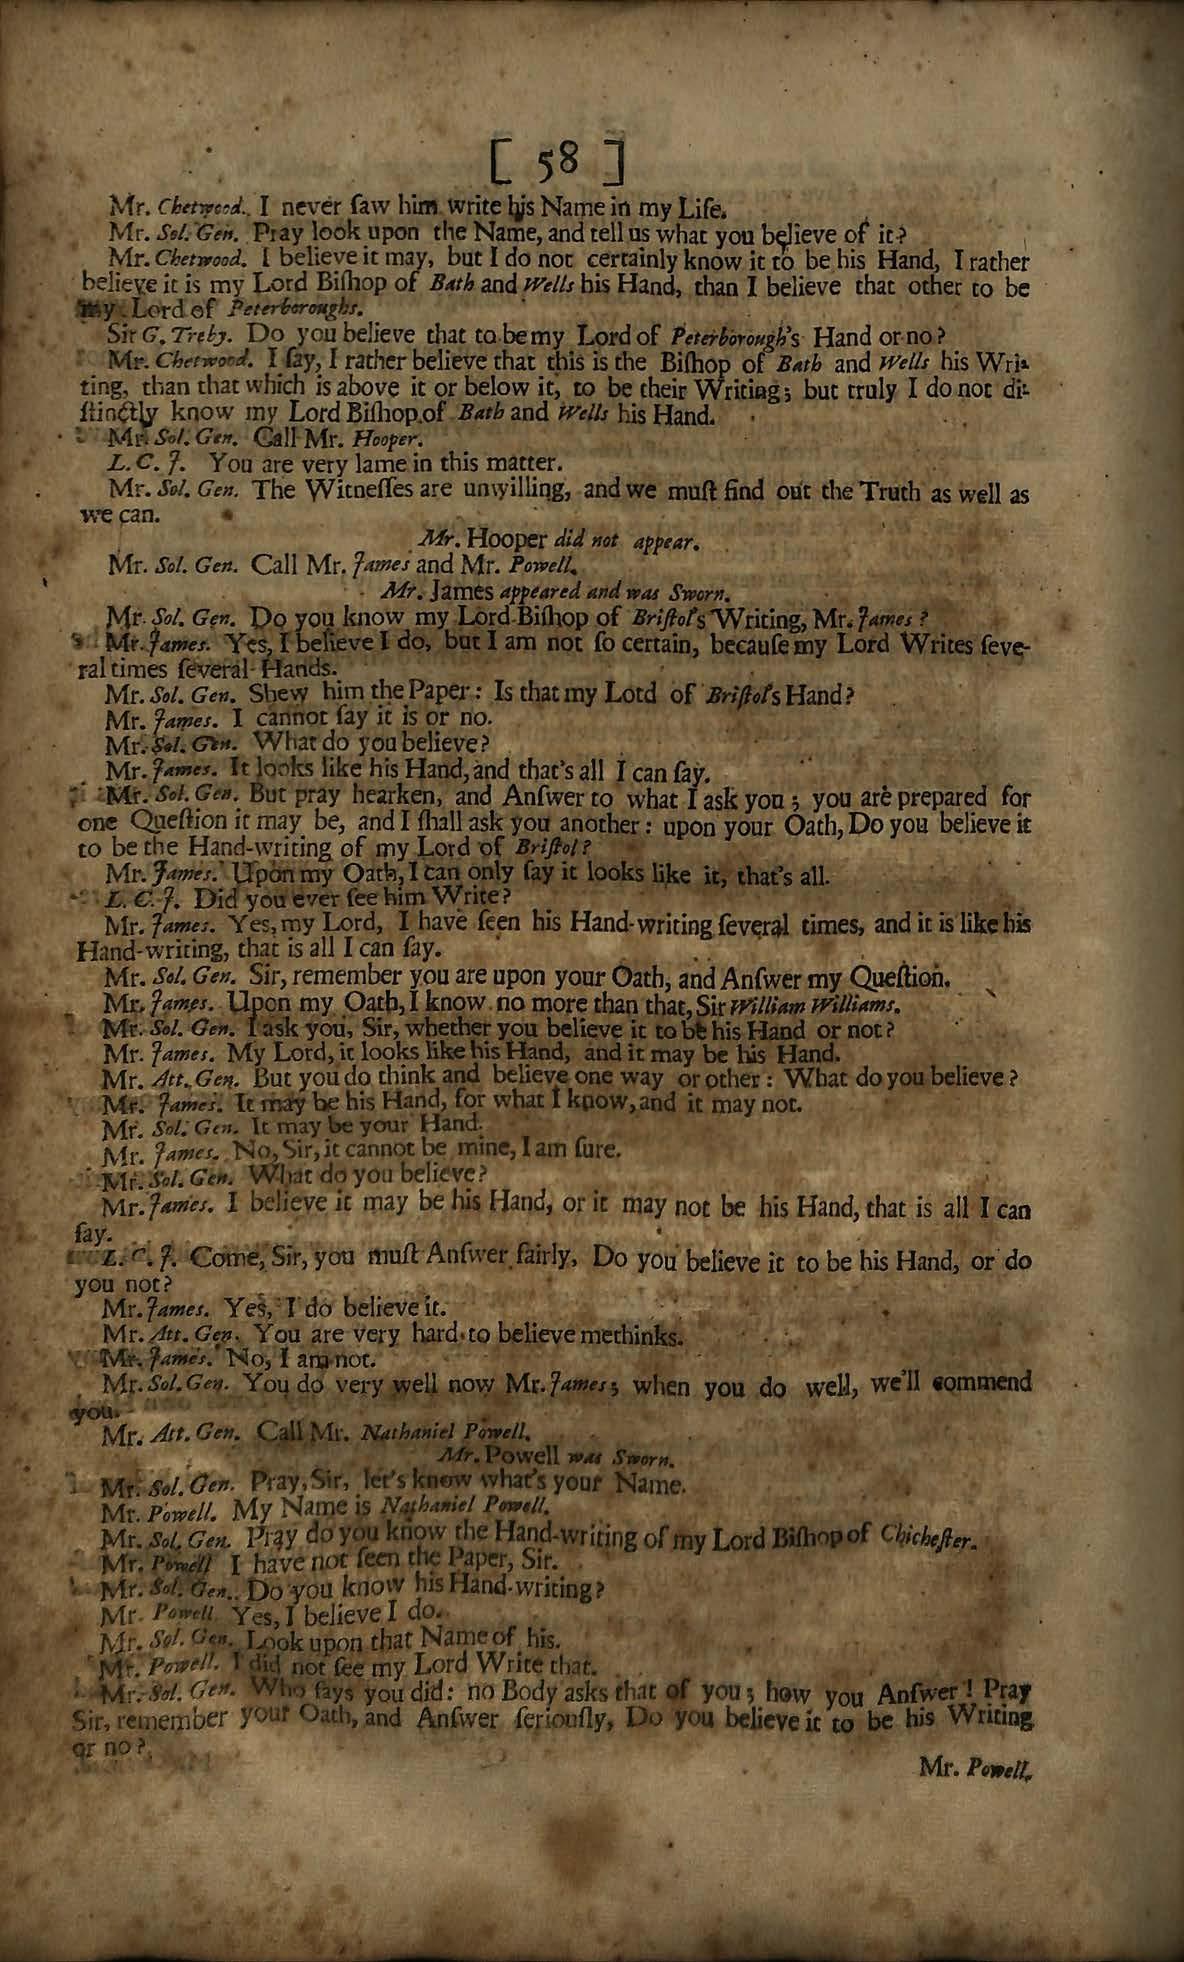 [ 58 ]
Mr. Chetwood. I never ſaw him write his Name in my Life.
Mr. Sol. Gen. Pray look upon the Name, and tell us what you believe of it?
Mr. Chetwood. I believe it may, but I do not certainly know it to be his Hand, I rather
believe it is my Lord Biſhop of Bath and Wells his Hand, than I believe that other to be
my Lord of Peterboroughs.
Sir G. Treby. Do you believe that to be my Lord of Peterborough's Hand or no?
Mr. Chetwood. I ſay, I rather believe that this is the Biſhop of Bath and Wells his Wri-
ting, than that which is above it or below it, to be their Writing; but truly I do not di-
ſtinctly know my Lord Biſhop of Bath and Wells his Hand.
Mr. Sol. Gen. Call Mr. Hooper.
L. C. J. You are very lame in this matter.
Mr. Sol. Gen. The Witneſſes are unwilling, and we muſt find out the Truth as well as
we can.
Mr. Hooper did not appear.
Mr. Sol. Gen. Call Mr. James and Mr. Powell.
Mr. James appeared and was Sworn.
Mr. Sol. Gen. Do you know my Lord Biſhop of Briſtol's Writing, Mr. James?
Mr. James. Yes, I believe I do, but I am not ſo certain, becauſe my Lord Writes ſeve-
ral times ſeveral Hands.
Mr. Sol. Gen. Shew him the Paper: Is that my Lord of Briſtol's Hand?
Mr. James. I cannot ſay it is or no.
Mr. Sol. Gen. What do you believe?
Mr. James. It looks like his Hand, and that's all I can ſay.
Mr. Sol. Gen. But pray hearken, and Anſwer to what I ask you; you are prepared for
one Queſtion it may be, and I ſhall ask you another: upon your Oath, Do you believe it
to be the Hand-writing of my Lord of Briſtol?
Mr. James. Upon my Oath, I can only ſay it looks like it, that's all.
L. C. J. Did you ever ſee him Write?
Mr. James. Yes, my Lord, I have ſeen his Hand-writing ſeveral times, and it is like his
Hand-writing, that is all I can ſay.
Mr. Sol. Gen. Sir, remember you are upon your Oath, and Anſwer my Queſtion.
Mr. James. Upon my Oath, I know no more than that, Sir William Williams.
Mr. Sol. Gen. I ask you, Sir, whether you believe it to be his Hand or not?
Mr. James. My Lord, it looks like his Hand, and it may be his Hand.
Mr. Att. Gen. But you do think and believe one way or other: What do you believe?
Mr. James. It may be his Hand, for what I know, and it may not.
Mr. Sol. Gen. It may be your Hand.
Mr. James. No, Sir, it cannot be mine, I am ſure.
Mr. Sol. Gen. What do you believe?
Mr. James. I believe it may be his Hand, or it may not be his Hand, that is all I can
ſay.
L. C. J. Come, Sir, you muſt Anſwer fairly, Do you believe it to be his Hand, or do
you not?
Mr. James. Yes, I do believe it.
Mr. Att. Gen. You are very hard to believe methinks.
Mr. James. No, I am not.
Mr. Sol. Gen. You do very well now Mr. James; when you do well, we'll commend
you.
Mr. Att. Gen. Call Mr. Nathaniel Powell.
Mr. Powell was Sworn.
Mr. Sol. Gen. Pray, Sir, let's know what's your Name.
Mr. Powell. My Name is Nathaniel Powell.
Mr. Sol. Gen. Pray do you know the Hand-writing of my Lord Biſhop of Chicheſter.
Mr. Powell I have not ſeen the Paper, Sir.
Mr. Sol. Gen. Do you know his Hand-writing?
Mr. Powell Yes, I believe I do.
Mr. Sol. Gen. Look upon that Name of his.
Mr. Powell. I did not ſee my Lord Write that.
Mr. Sol. Gen. Who ſays you did: no Body asks that of you; how you Anſwer! Pray
Sir, remember your Oath, and Anſwer ſeriouſly, Do you believe it to be his Writing
or no?
Mr. Powell.